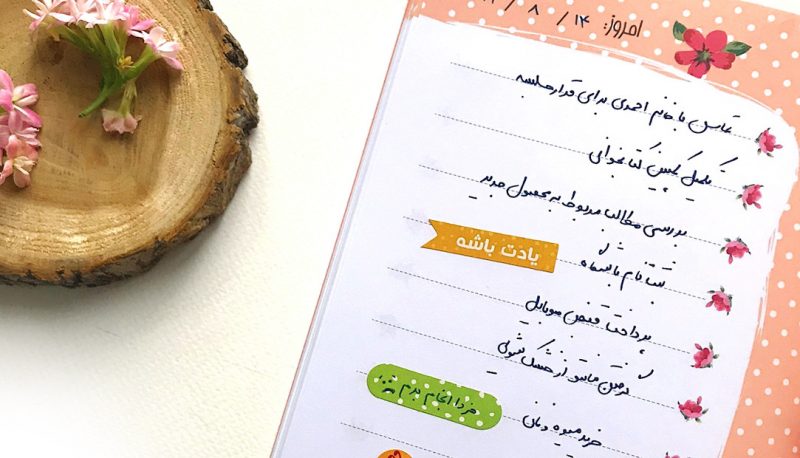 امروز: ۱۴ / ۸ /
تماس با خانم احمدی برای قرار جلسه
تکمیل کمپین کتابخوانی
بررسی مطالب مربوط به محصول جدید
ثبت نام باشگاه
یادت باشه
پرداخت قبض موبایل
گرفتن مانتو از خشکشویی
خرید میوه و نان
فردا انجام بدم